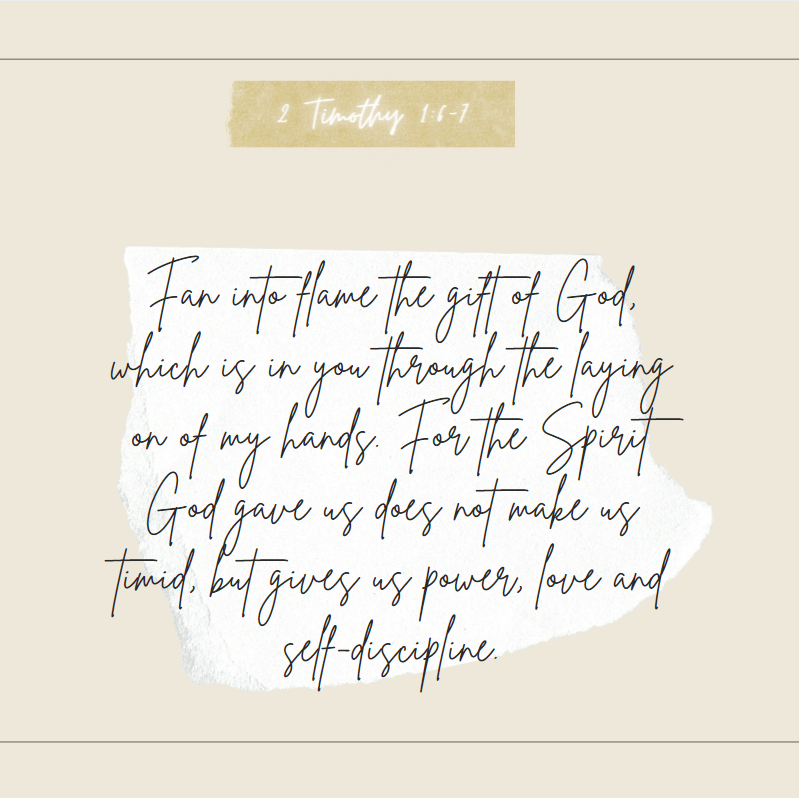 2 Timothy 1:6-7
Fan into flame the gift of God,
which is in you through the laying
on of my hands. For the Spirit
God gave us does not make us
timid, but gives us power, love and
self-discipline.